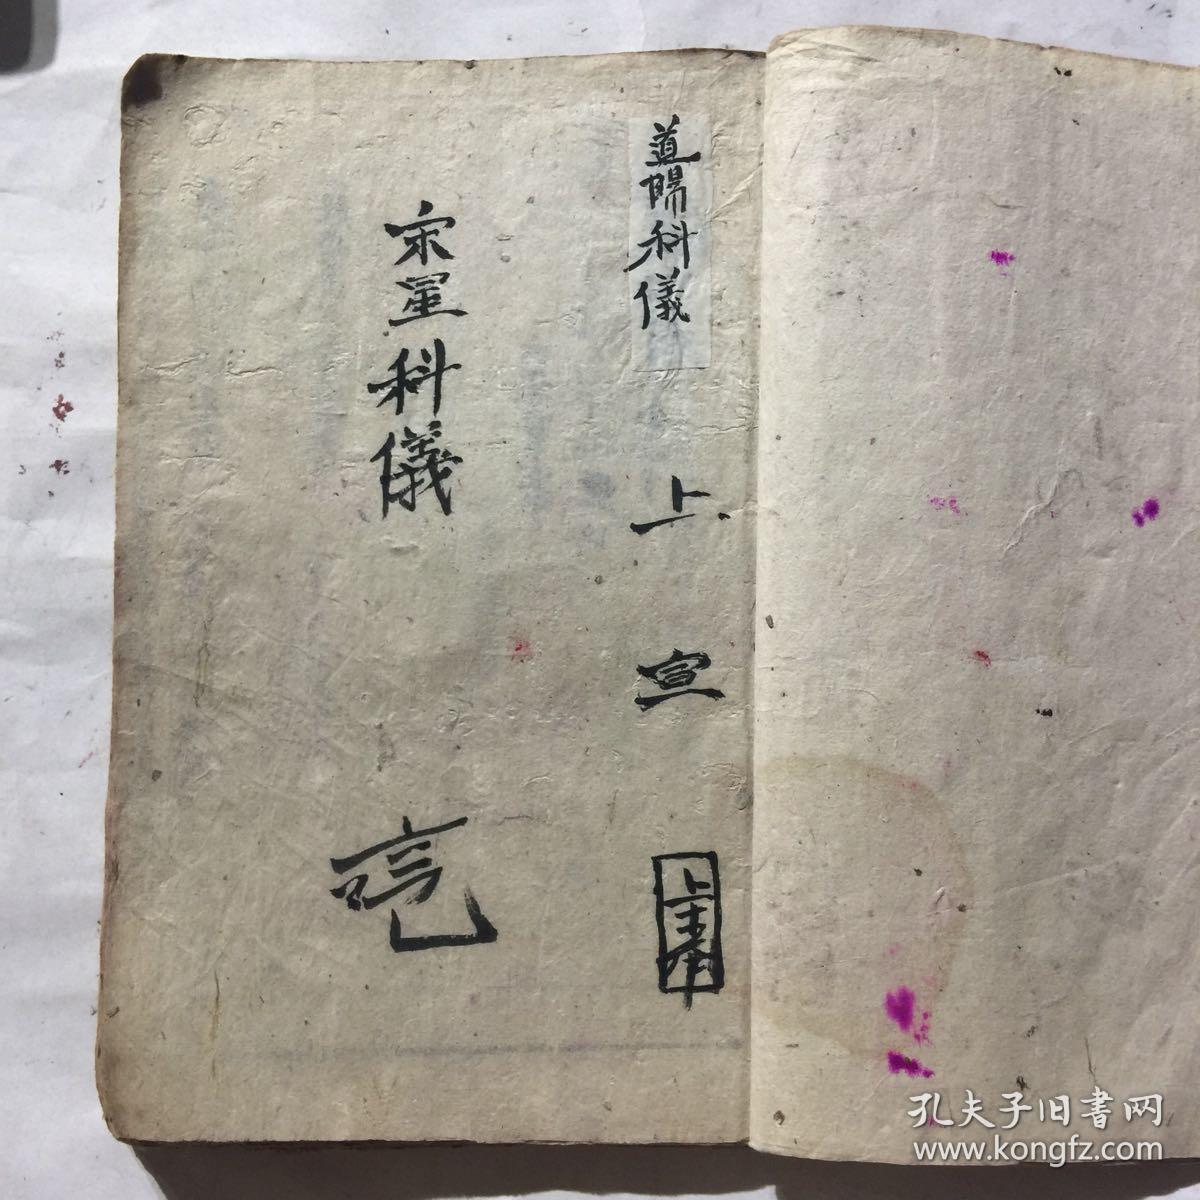 道陽科儀
上宣
宋星科儀
孔夫子旧書网
www.kongfz.com